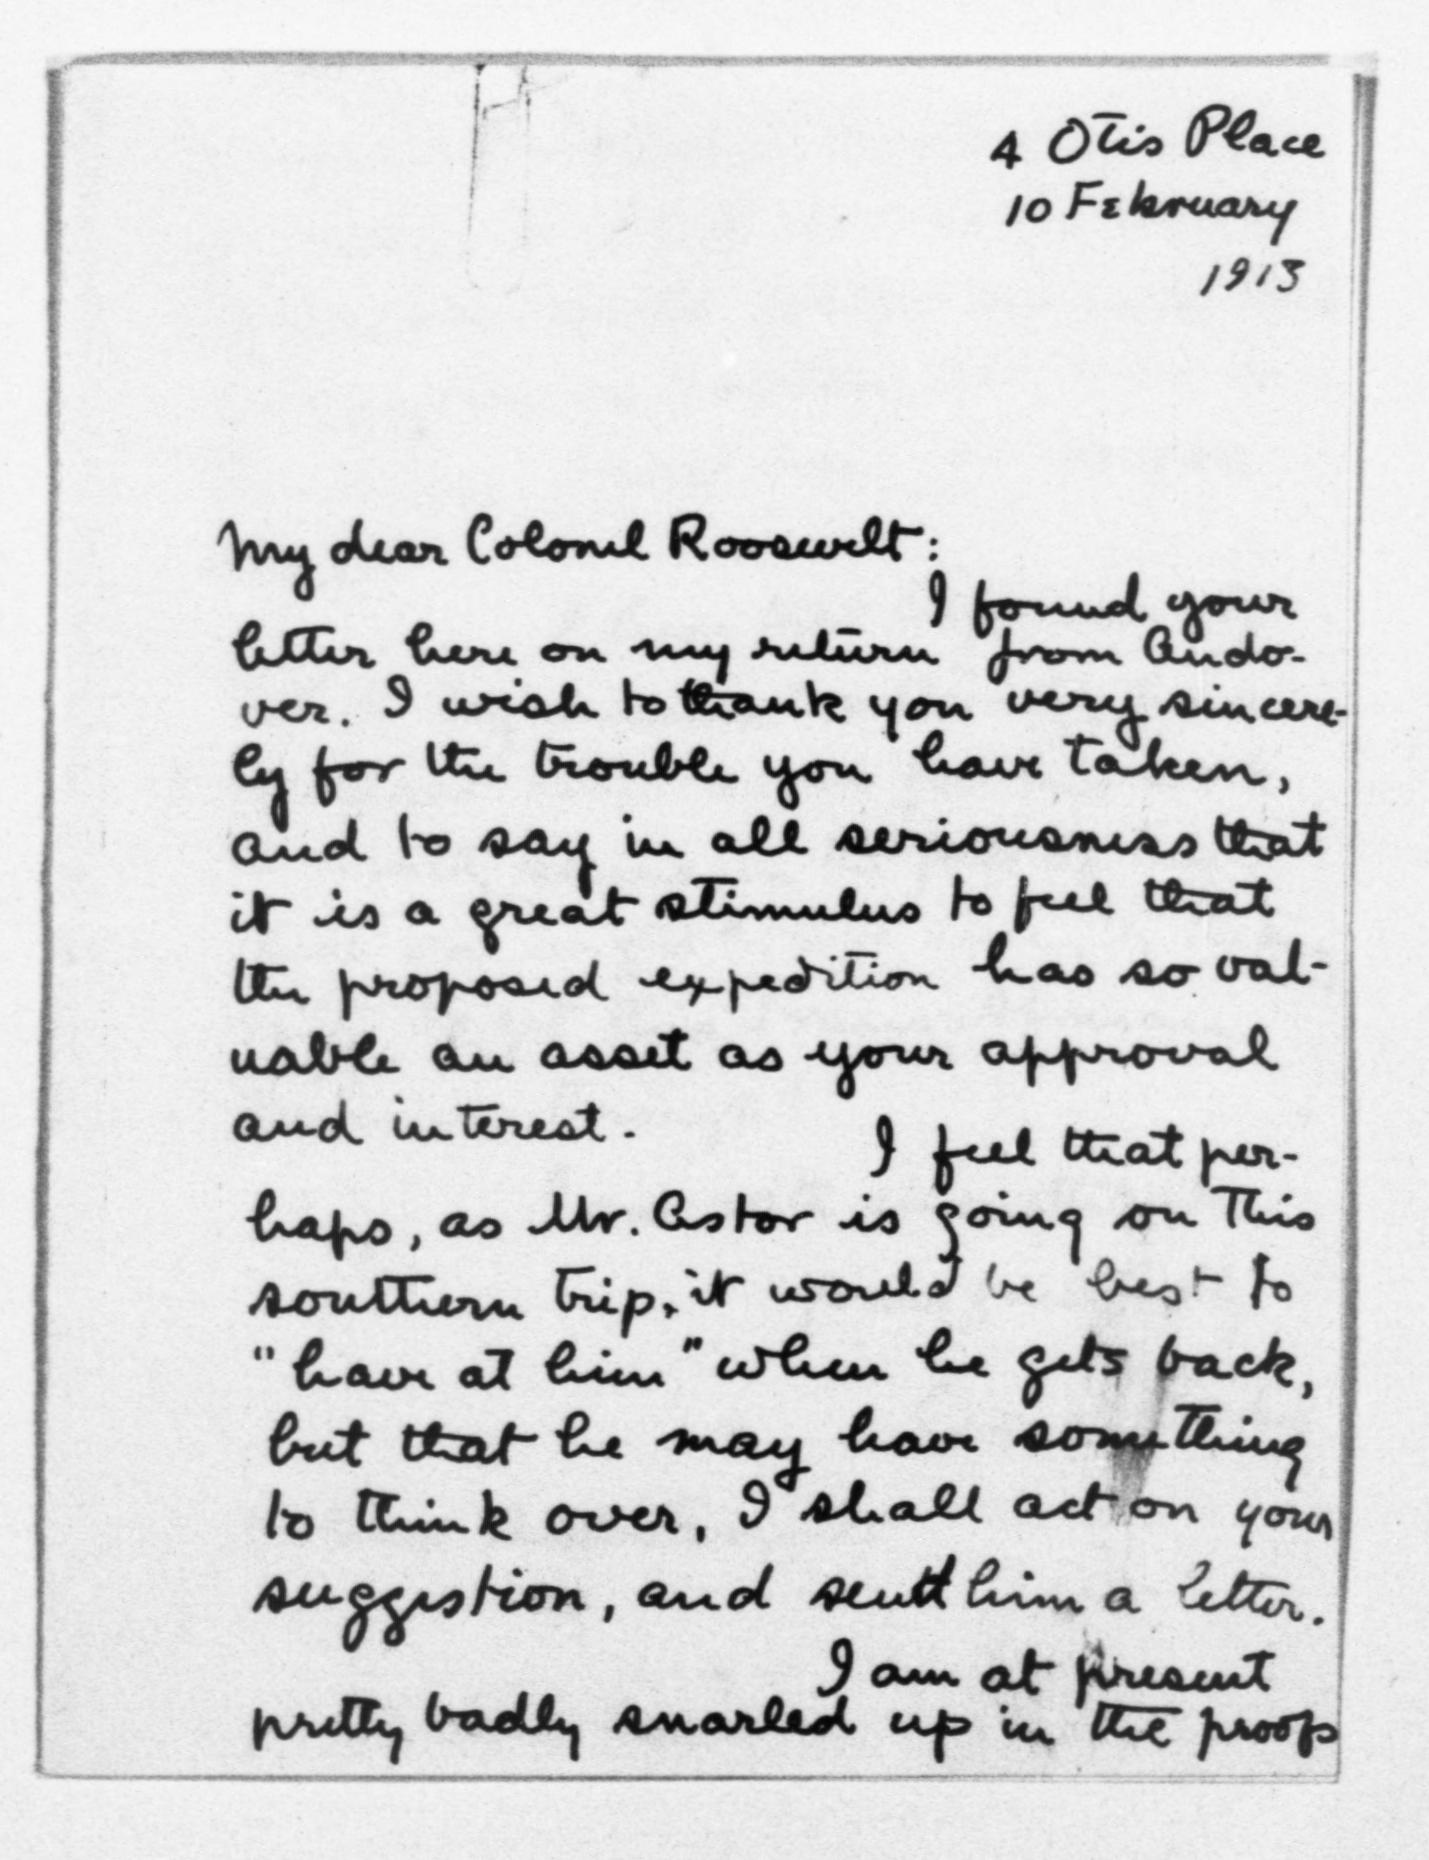 4 Otis Place
10 February
1913
My dear Colonel Roosevelt:
I found your
letter here on my return from Ando-
ver. I wish to thank you very sincere-
ly for the trouble you have taken,
and to say in all seriousness that
it is a great stimulus to feel that
the proposed expedition has so val-
uable an asset as your approval
and interest.
I feel that per-
haps, as Mr. Astor is going on this
southern trip, it would be best to
"have at him" when he gets back,
but that he may have something
to think over, I shall act on your
suggestion, and send him a letter.
I am at present
pretty badly snarled up in the proofs